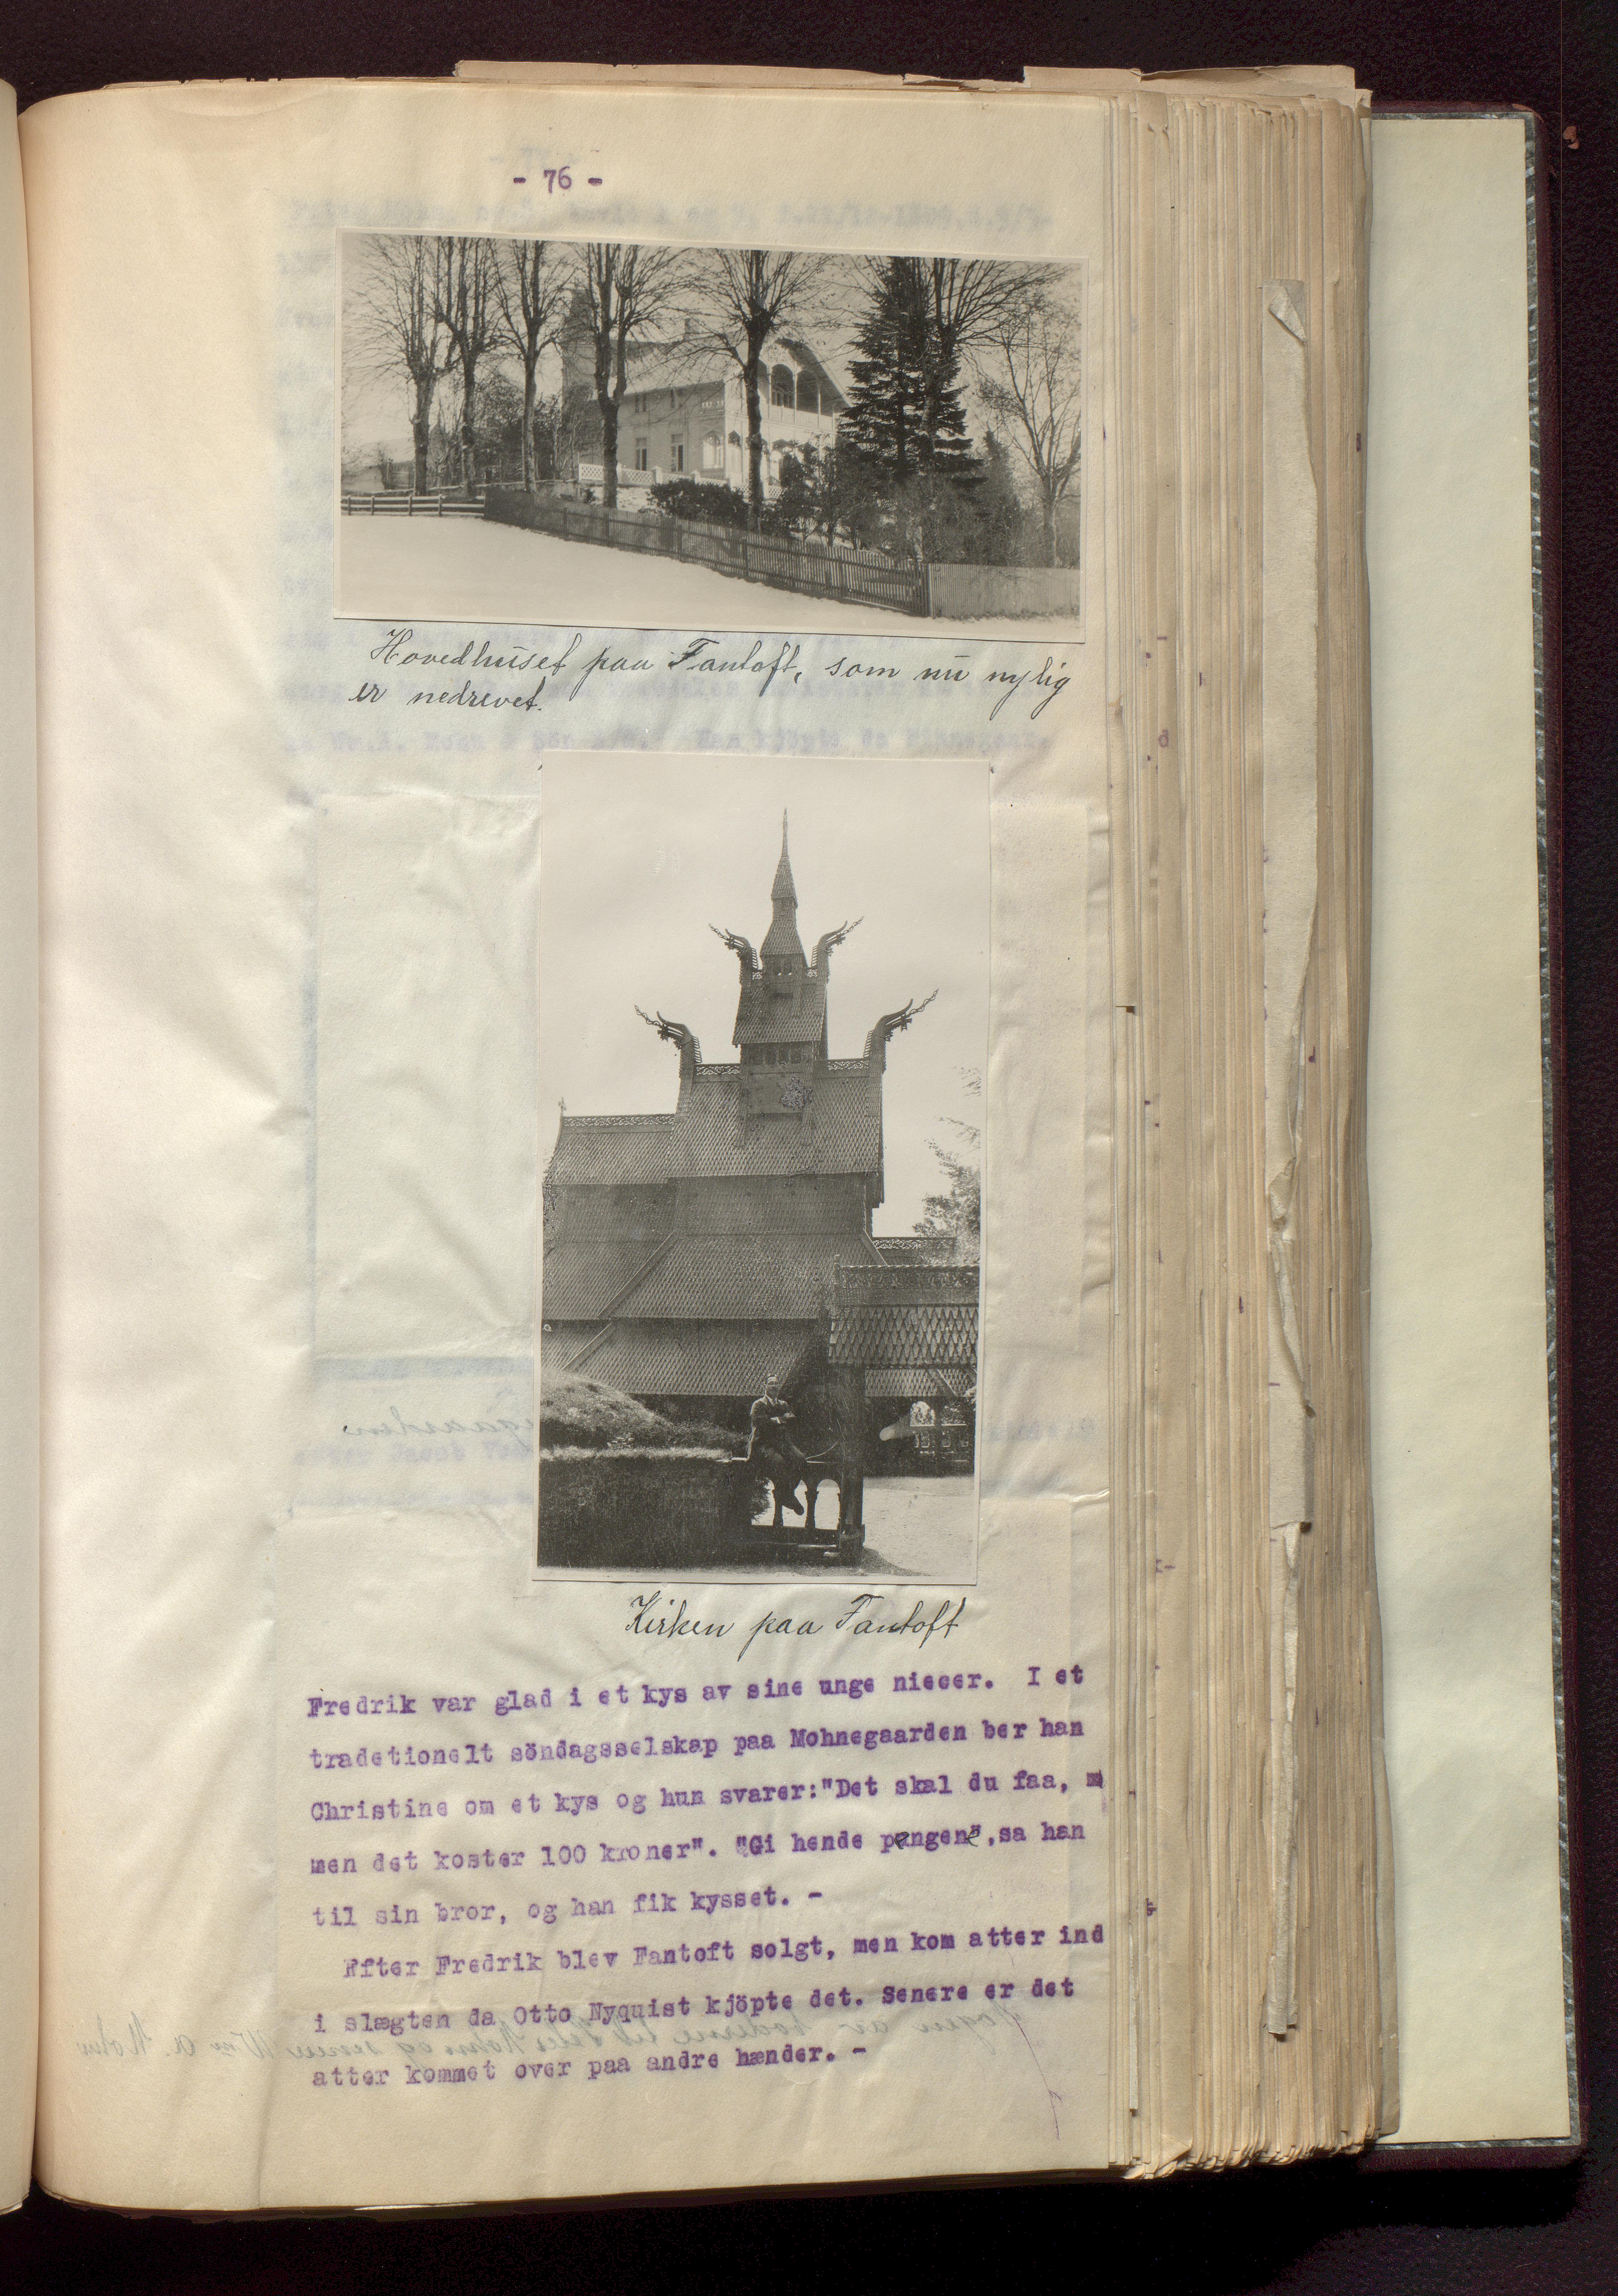 - 76 -
Hovedhuset paa Fantoft, som nu nylig
er nedrevet.
Kirken paa Fantoft
Fredrik var glad i et kys av sine unge niecer. I et
tradetionelt söndagsselskap paa Mohnegaarden ber han
Christine om et kys og hun svarer:"Det skal du faa,
men det koster 100 kroner". "Gi hende pengene",sa han
til sin bror, og han fik kysset. -
Efter Fredrik blev Fantoft solgt, men kom atter ind
i slægten da Otto Nyquist kjöpte det. Senere er det
atter kommet over paa andre hænder. -